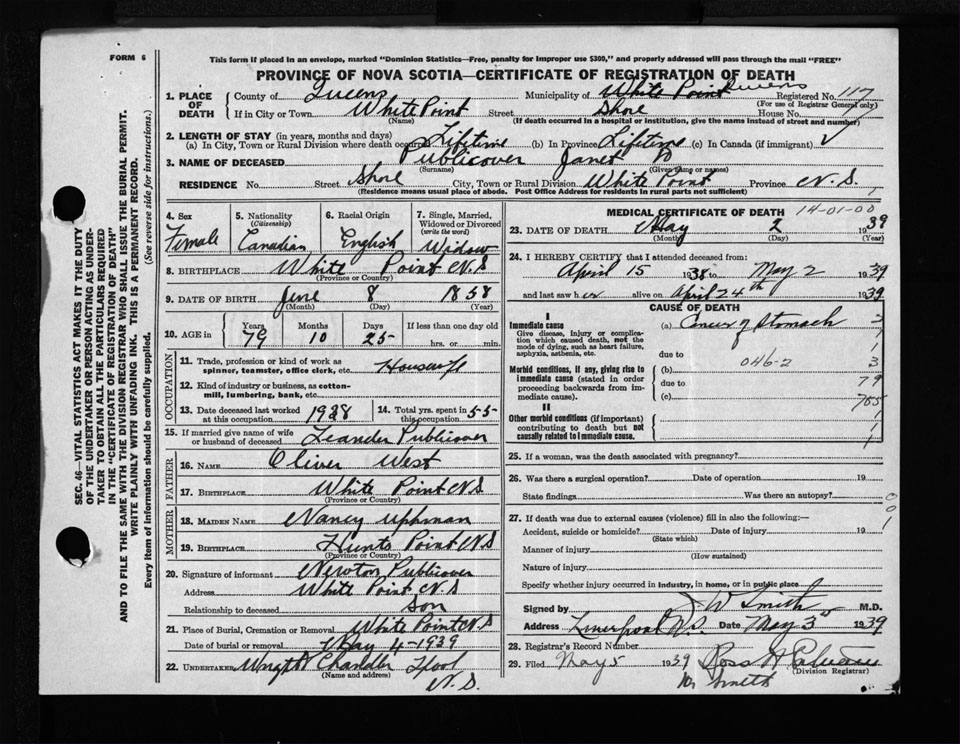 FORM 6
This form if placed in an envelope, marked "Dominion Statistics—Free, penalty for improper use $300," and properly addressed will pass through the mail "FREE"
PROVINCE OF NOVA SCOTIA—CERTIFICATE OF REGISTRATION OF DEATH
1. PLACE OF DEATH County of Queens Municipality of White Point Queens Registered No. 117
(For use of Registrar General only)
If in City or Town White Point Street Shore House No.
(Name) (If death occurred in a hospital or institution, give the name instead of street and number)
2. LENGTH OF STAY (in years, months and days)
(a) In City, Town or Rural Division where death occurred Lifetime (b) In Province Lifetime (c) In Canada (if immigrant)
3. NAME OF DECEASED Publicover Janet
(Surname) (Given name or names)
RESIDENCE No. Street Shore City, Town or Rural Division White Point Province N.S.
(Residence means usual place of abode. Post Office Address for residents in rural parts not sufficient)
SEC. 46—VITAL STATISTICS ACT MAKES IT THE DUTY
OF THE UNDERTAKER OR PERSON ACTING AS UNDER-
TAKER TO OBTAIN ALL THE PARTICULARS REQUIRED
IN THE "CERTIFICATE OF REGISTRATION OF DEATH"
AND TO FILE THE SAME WITH THE DIVISION REGISTRAR WHO SHALL ISSUE THE BURIAL PERMIT.
WRITE PLAINLY WITH UNFADING INK. THIS IS A PERMANENT RECORD.
Every item of information should be carefully supplied. (See reverse side for instructions.)
4. Sex 5. Nationality (Citizenship) 6. Racial Origin 7. Single, Married, Widowed or Divorced (write the word)
Female Canadian English Widow
8. BIRTHPLACE White Point N.S
(Province or Country)
9. DATE OF BIRTH June 8 1858
(Month) (Day) (Year)
10. AGE in Years Months Days If less than one day
79 10 25 hrs. or min.
OCCUPATION
11. Trade, profession or kind of work as spinner, teamster, office clerk, etc. Housewife
12. Kind of industry or business, as cotton-mill, lumbering, bank, etc.
13. Date deceased last worked at this occupation 1938 14. Total yrs. spent in this occupation 55
15. If married give name of wife or husband of deceased Leander Publicover
FATHER
16. NAME Oliver West
17. BIRTHPLACE White Point N.S
(Province or Country)
MOTHER
18. MAIDEN NAME Nancy Uphman
19. BIRTHPLACE Hunts Point N.S
(Province or Country)
20. Signature of informant Newton Publicover
Address White Point N.S
Relationship to deceased Son
21. Place of Burial, Cremation or Removal White Point N.S
Date of burial or removal May 4-1939
22. UNDERTAKER Chandler Lpool
(Name and address) N.S.
MEDICAL CERTIFICATE OF DEATH 14-01-00
23. DATE OF DEATH May 2 1939
(Month) (Day) (Year)
24. I HEREBY CERTIFY that I attended deceased from:
April 15 1938 to May 2 1939
and last saw her alive on April 24th 1939
CAUSE OF DEATH
I
Immediate cause (a) Cancer of Stomach
Give disease, injury or complication which caused death, not the mode of dying, such as heart failure, asphyxia, asthenia, etc.
due to
Morbid conditions, if any, giving rise to immediate cause (stated in order proceeding backwards from immediate cause). (b) 046-2 3
due to 79
(c)
II
Other morbid conditions (if important) contributing to death but not causally related to immediate cause.
25. If a woman, was the death associated with pregnancy?
26. Was there a surgical operation? Date of operation 19
State findings Was there an autopsy?
27. If death was due to external causes (violence) fill in also the following:—
Accident, suicide or homicide? Date of injury 19
(State which)
Manner of injury
(How sustained)
Nature of injury
Specify whether injury occurred in industry, in home, or in public place
Signed by J W Smith M.D.
Address Liverpool N.S. Date May 3 1939
28. Registrar's Record Number
29. Filed May 5 1939 Ross
(Division Registrar)
Smith